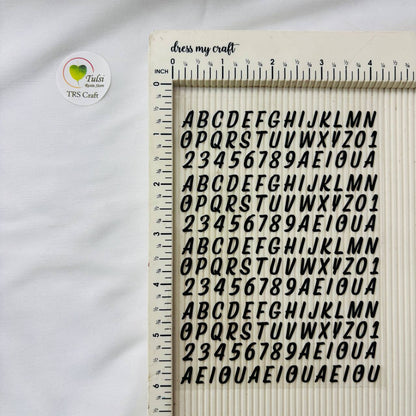 dress my craft
Tulsi
Resin Store
TRS Craft
INCH 0 1 2 3 4
0
1
2
3
4
5
6
ABCDEFGHIJKLMN
OPQRSTUVWXYZ01
23456789AEIOUA
ABCDEFGHIJKLMN
OPQRSTUVWXYZ01
23456789AEIOUA
ABCDEFGHIJKLMN
OPQRSTUVWXYZ01
23456789AEIOUA
ABCDEFGHIJKLMN
OPQRSTUVWXYZ01
23456789AEIOUA
AEIOUAEIOUAEIOU